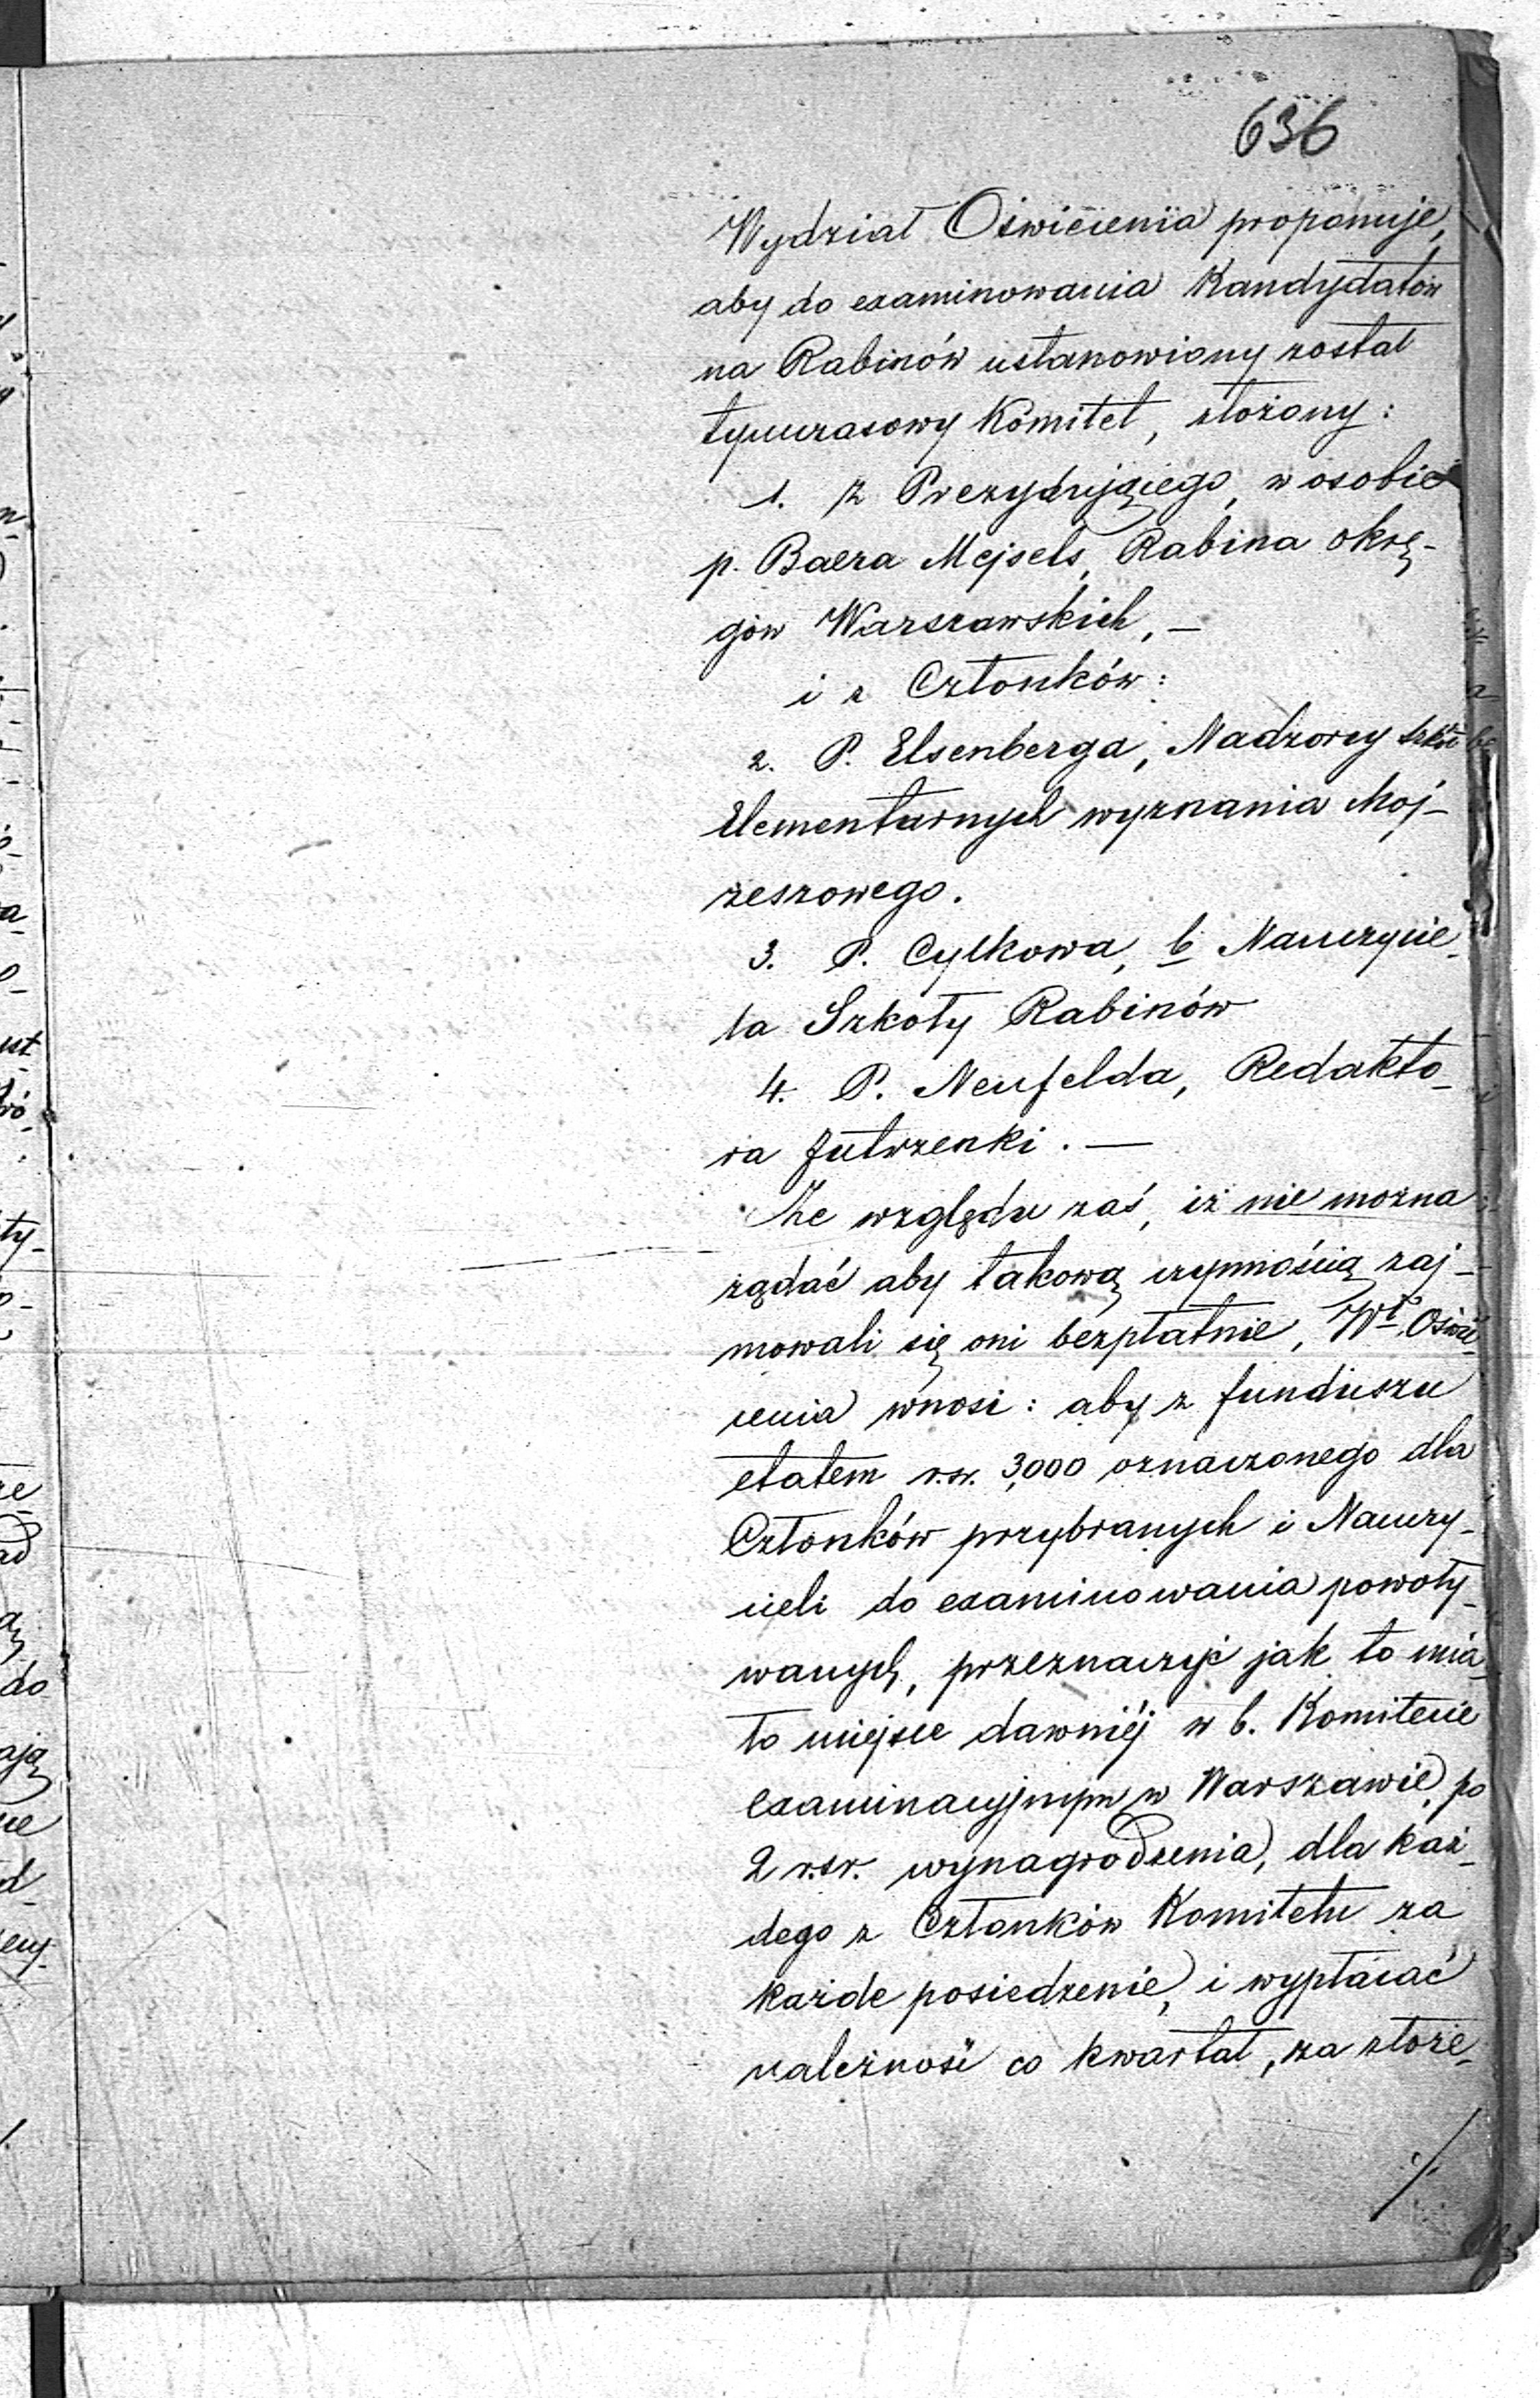 636
Wydział Oświecenia proponuje,
aby do examinowania Kandydatów
na Rabinów ustanowiony został
tymczasowy Komitet, złożony:
1. z Prezydującego, w osobie
p. Baera Mejsels, Rabina okrę-
gów Warszawskich, —
i z Członków:
2. P. Elsenberga, Nadzorcy Szkół
Elementarnych wyznania Moj-
żeszowego.
3. P. Cylkowa, b Nauczycie-
la Szkoły Rabinów
4. P. Neufelda, Redakto-
ra Jutrzenki. —
Ze względu zaś, iż nie można
żądać aby takową czynnością zaj-
mowali się oni bezpłatnie, Wł. Oświe-
cenia wnosi: aby z funduszu
etatem r.sr. 3,000 oznaczonego dla
Członków przybranych i Nauczy-
cieli do examinowania powoły-
wanych, przeznaczyć jak to mia-
ło miejsce dawniéj w b. Komitecie
examinacyjnym w Warszawie, po
2 r.sr. wynagrodzenia, dla każ-
dego z Członków Komitetu za
każde posiedzenie, i wypłacać
należność co kwartał, za złoże-
./.